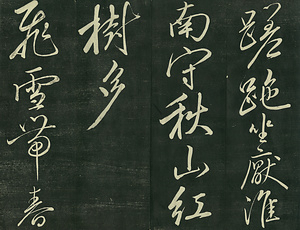 蹉跎坐厭淮
南守秋山紅
樹多
飛雪帶春